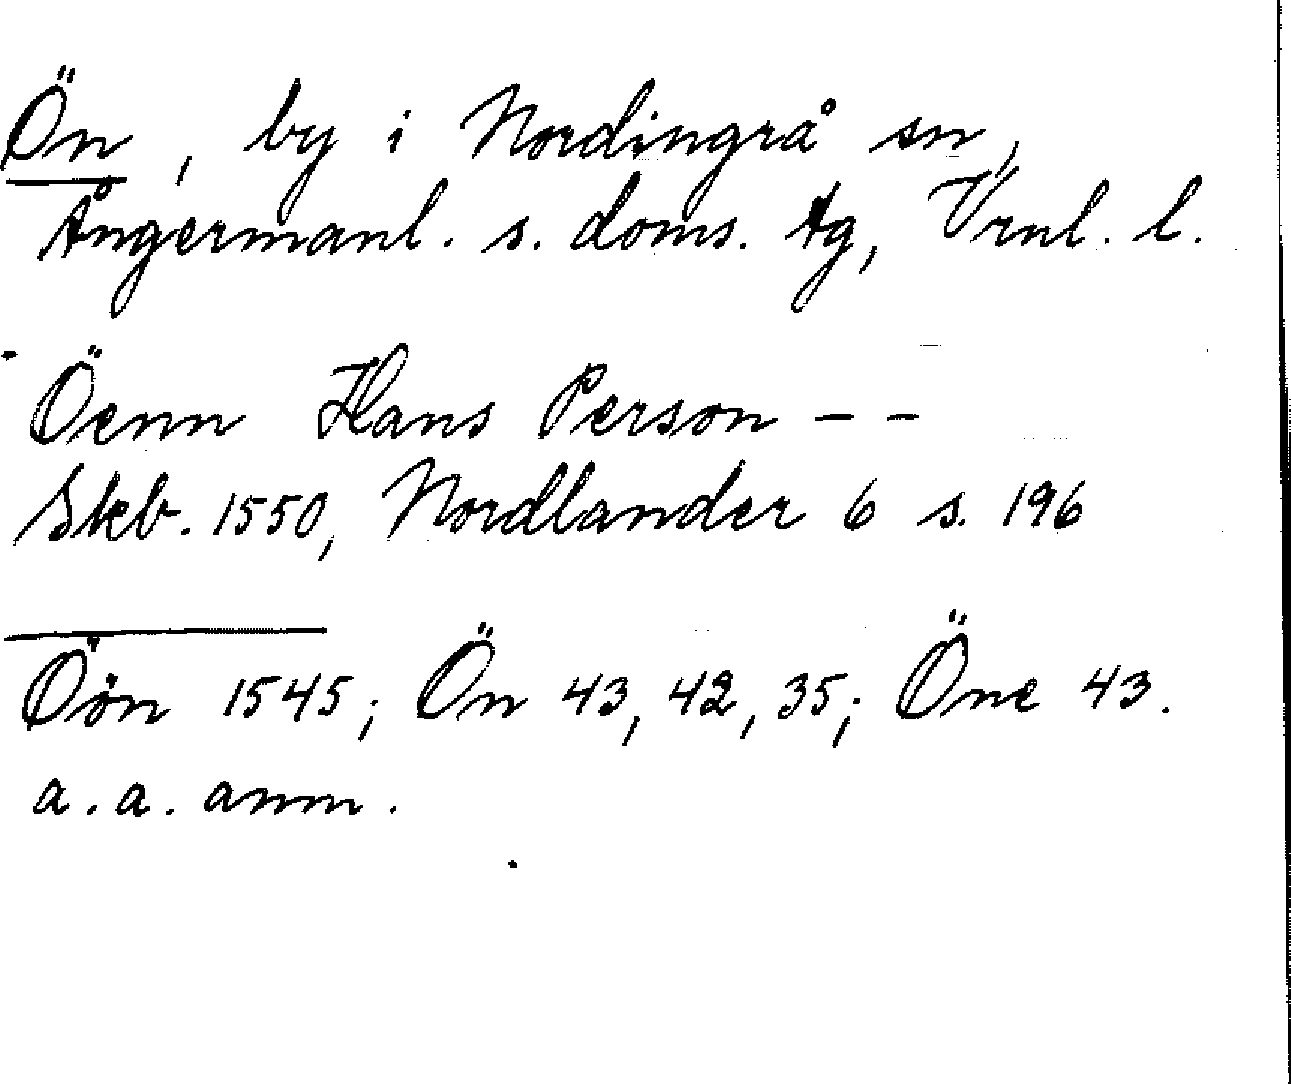 Ön, by i Nordingrå sn,
Ångermanl. s. doms. tg, Vrnl. l.
Öenn Hans Person - -
Skb. 1550, Nordlander 6 s. 196
Öön 1545; Ön 43, 42, 35; Öne 43.
a. a. anm.